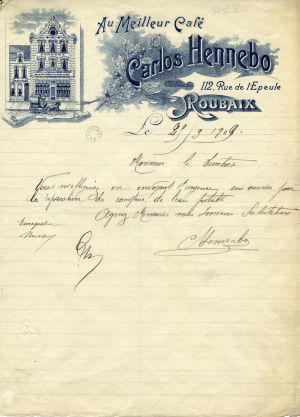 Au Meilleur Café
Carlos Hennebo
112, Rue de l'Epeule
ROUBAIX
Le 21/3 1909.
Monsieur le directeur
Vous m'obligeriez en envoyant d'urgence un ouvrier pour
la réparation du compteur de l'eau potable
Agréez Monsieur mes sincères Salutations
CHennebo